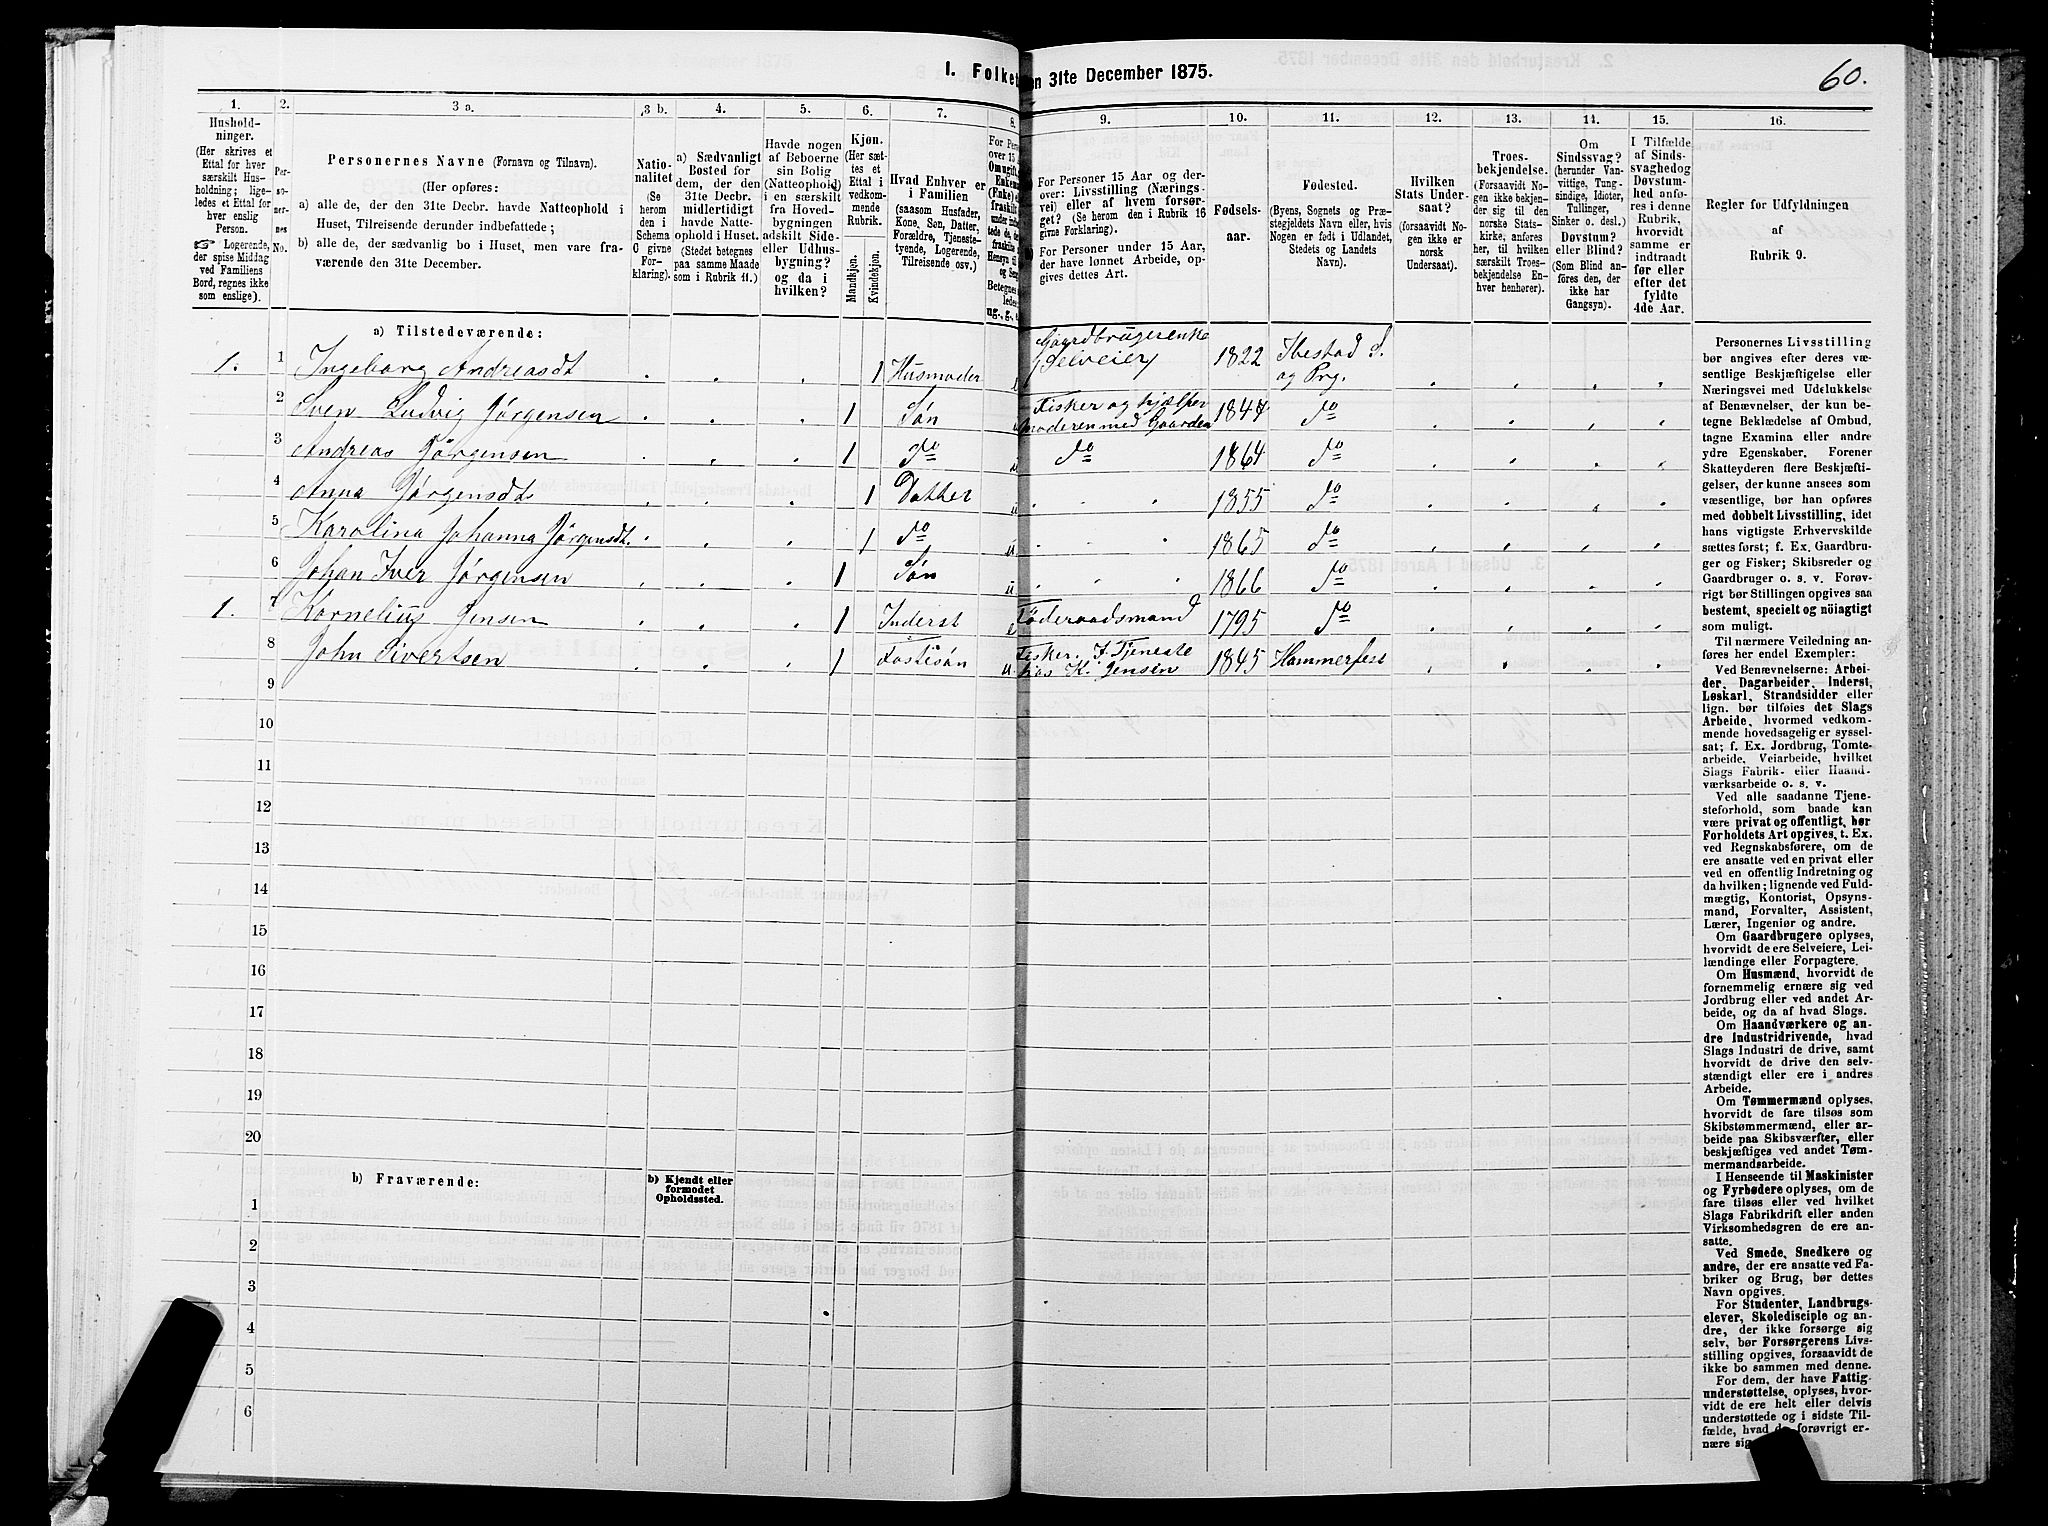 I. Folket
en 31te December 1875.
60.
1.
2.
3 a.
3 b.
4.
5.
6.
7.
8.
9.
10.
11.
12.
13.
14.
15.
16.
Hushold-
ninger.
(Her skrives et
Ettal for hver
særskilt Hus-
holdning; lige-
ledes et Ettal for
hver enslig
Person.
☞ Logerende,
der spise Middag
ved Familiens
Bord, regnes ikke
som enslige).
Per-
so-
ner-
nes
No.
Personernes Navne (Fornavn og Tilnavn).
(Her opføres:
a) alle de, der den 31te Decbr. havde Natteophold i
Huset, Tilreisende derunder indbefattede;
b) alle de, der sædvanlig bo i Huset, men vare fra-
værende den 31te December.
Natio-
nalitet
(Se
herom
den i
Schema
C givne
For-
klaring).
a) Sædvanligt
Bosted for
dem, der den
31te Decbr.
midlertidigt
havde Natte-
ophold i Huset.
(Stedet betegnes
paa samme Maade
som i Rubrik 11.)
Havde nogen
af Beboerne
sin Bolig
(Natteophold)
i en særskilt
fra Hoved-
bygningen
adskilt Side-
eller Udhus-
bygning?
og da i
hvilken?
Kjøn.
(Her sæt-
tes et
Ettal i
vedkom-
mende
Rubrik.
Mandkjøn.
Kvindekjøn.
Hvad Enhver er
i Familien
(saasom Husfader,
Kone, Søn, Datter,
Forældre, Tjeneste-
tyende, Logerende,
Tilreisende osv.)
For Person
over 15 A
Omugift,
Enkema
(Enke) e
fraskilt
under indb
tede de, d
fraskilte
Hensyn til
og Sen
Betegnes
ledes:
ug., g., e
For Personer 15 Aar og der-
over: Livsstilling (Nærings-
vei) eller af hvem forsør-
get? (Se herom den i Rubrik 16
givne Forklaring).
For Personer under 15 Aar,
der have lønnet Arbeide, op-
gives dettes Art.
Fødsels-
aar.
Fødested.
(Byens, Sognets og Præ-
stegjeldets Navn eller, hvis
Nogen er født i Udlandet,
Stedets og Landets
Navn).
Hvilken
Stats Under-
saat?
(forsaavidt No-
gen ikke er
norsk
Undersaat).
Troes-
bekjendelse.
(Forsaavidt No-
gen ikke bekjen-
der sig til den
norske Stats-
kirke, anføres
her, til hvilken
særskilt Troes-
bekjendelse En-
hver henhører).
Om
Sindssvag?
(herunder Van-
vittige, Tung-
sindige, Idioter,
Tullinger,
Sinker o. desl.)
Døvstum?
eller Blind?
(Som Blind an-
føres den, der
ikke har
Gangsyn).
I Tilfælde
af Sinds-
svaghedog
Døvstum-
hed anfø-
res i denne
Rubrik,
hvorvidt
samme er
indtraadt
før eller
efter det
fyldte
4de Aar.
Regler for Udfyldningen
af
Rubrik 9.
a) Tilstedeværende:
1. 1 Ingeborg Andreasdt . . . 1 Husmoder e Gaardbrugerenke Selveier 1822 Ibestad S. og Prg. . . . .
2 Sven Ludvig Jørgensen . . . 1 Søn u Fisker og hjælper moderen med Gaarden 1847 do . . . .
3 Andreas Jørgensen . . . 1 do u do 1864 do . . . .
4 Anna Jørgensdt . . . 1 Datter u . . . 1855 do . . . .
5 Karolina Johanna Jørgensdt. . . . 1 do u . . . 1865 do . . . .
6 Johan Iver Jørgensen . . . 1 Søn u . . . 1866 do . . . .
1. 7 Kornelius Jensen . . . 1 Inderst e Føderaadsmand 1795 do . . . .
8 John Sivertsen . . . 1 Fostersøn u Fisker. I Tjeneste hos K. Jensen 1845 Hammerfest . . . .
9
10
11
12
13
14
15
16
17
18
19
20
b) Fraværende:
b) Kjendt eller
formodet
Opholdssted.
1
2
3
4
5
6
Personernes Livsstilling
bør angives efter deres væ-
sentlige Beskjæftigelse eller
Næringsvei med Udelukkelse
af Benævnelser, der kun be-
tegne Beklædelse af Ombud,
tagne Examina eller andre
ydre Egenskaber. Forener
Skatteyderen flere Beskjæfti-
gelser, der kunne ansees som
væsentlige, bør han opføres
med dobbelt Livsstilling, idet
hans vigtigste Erhvervskilde
sættes først; f. Ex. Gaardbru-
ger og Fisker; Skibsreder og
Gaardbruger o. s. v. Forøv-
rigt bør Stillingen opgives saa
bestemt, specielt og nöiagtigt
som muligt.
Til nærmere Veiledning an-
føres her endel Exempler:
Ved Benævnelserne: Arbei-
der, Dagarbeider, Inderst,
Løskarl, Strandsidder eller
lign. bør tilføies det Slags
Arbeide, hvormed vedkom-
mende hovedsagelig er syssel-
sat; f. Ex. Jordbrug, Tomte-
arbeide, Veiarbeide, hvilket
Slags Fabrik- eller Haand-
værksarbeide o. s. v.
Ved alle saadanne Tjene-
steforhold, som baade kan
være privat og offentligt, bør
Forholdets Art opgives, t. Ex.
ved Regnskabsførere, om de
ere ansatte ved en privat eller
ved en offentlig Indretning og
da hvilken; lignende ved Fuld-
mægtig, Kontorist, Opsyns-
mand, Forvalter, Assistent,
Lærer, Ingeniør og andre.
Om Gaardbrugere oplyses,
hvorvidt de ere Selveiere, Lei-
lændinge eller Forpagtere.
Om Husmænd, hvorvidt de
fornemmelig ernære sig ved
Jordbrug eller ved andet Ar-
beide, og da af hvad Slags.
Om Haandværkere og an-
dre Industridrivende, hvad
Slags Industri de drive, samt
hvorvidt de drive den selv-
stændigt eller ere i andres
Arbeide.
Om Tømmermænd oplyses,
hvorvidt de fare tilsøs som
Skibstømmermænd, eller ar-
beide paa Skibsværfter, eller
beskjæftiges ved andet Tøm-
mermandsarbeide.
I Henseende til Maskinister
og Fyrbødere oplyses, om de
fare tilsøs eller ved hvilket
Slags Fabrikdrift eller anden
Virksomhedsgren de ere an-
satte.
Ved Smede, Snedkere og
andre, der ere ansatte ved Fa-
briker og Brug, bør dettes
Navn opgives.
For Studenter, Landbrugs-
elever, Skoledisciple og an-
dre, der ikke forsørge sig
selv, bør Forsørgerens Livs-
stilling opgives, forsaavidt de
ikke bo sammen med denne.
For dem, der have Fattig-
understøttelse, oplyses, hvor-
vidt de ere helt eller delvis
understøttede og i sidste Til-
fælde, hvad de forøvrigt er-
nære sig